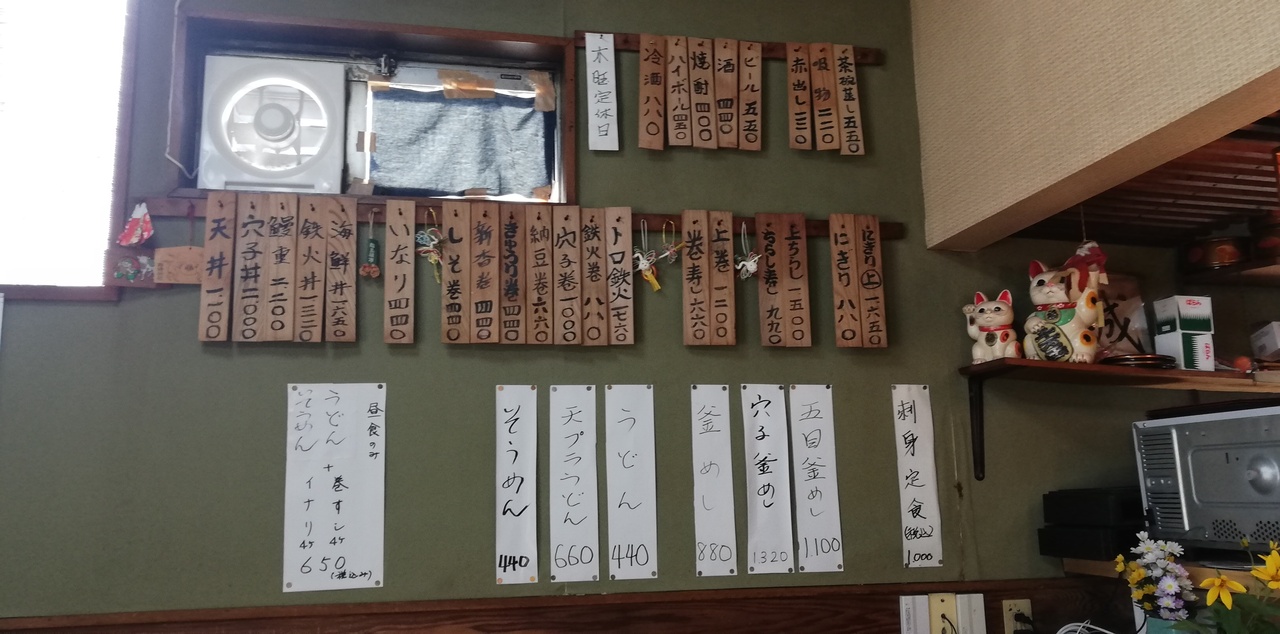 茶碗蒸し 五五〇
吸物 二二〇
赤出し 三三〇
ビール 五五〇
酒 四四〇
焼酎 四四〇
ハイボール 四五〇
冷酒 八八〇
木曜定休日
にぎり(上) 一六五〇
にぎり 八八〇
上ちらし 一五四〇
ちらし寿し 九九〇
上巻 一二〇〇
巻寿し 六六〇
トロ鉄火 一七六〇
鉄火巻 八八〇
穴子巻 一〇〇〇
納豆巻 六六〇
きゅうり巻 四四〇
新香巻 四四〇
しそ巻 四四〇
いなり 四四〇
海鮮丼 一六五〇
鉄火丼 一三二〇
鰻重 二二〇〇
穴子丼 二〇〇〇
天丼 一一〇〇
刺身定食
(税込)
1,000
五目釜めし
1,100
穴子釜めし
1320
釜めし
880
うどん
440
天プラうどん
660
そうめん
440
昼食のみ
うどん
そうめん
+
巻すし4ケ
イナリ4ケ
650
(税込み)